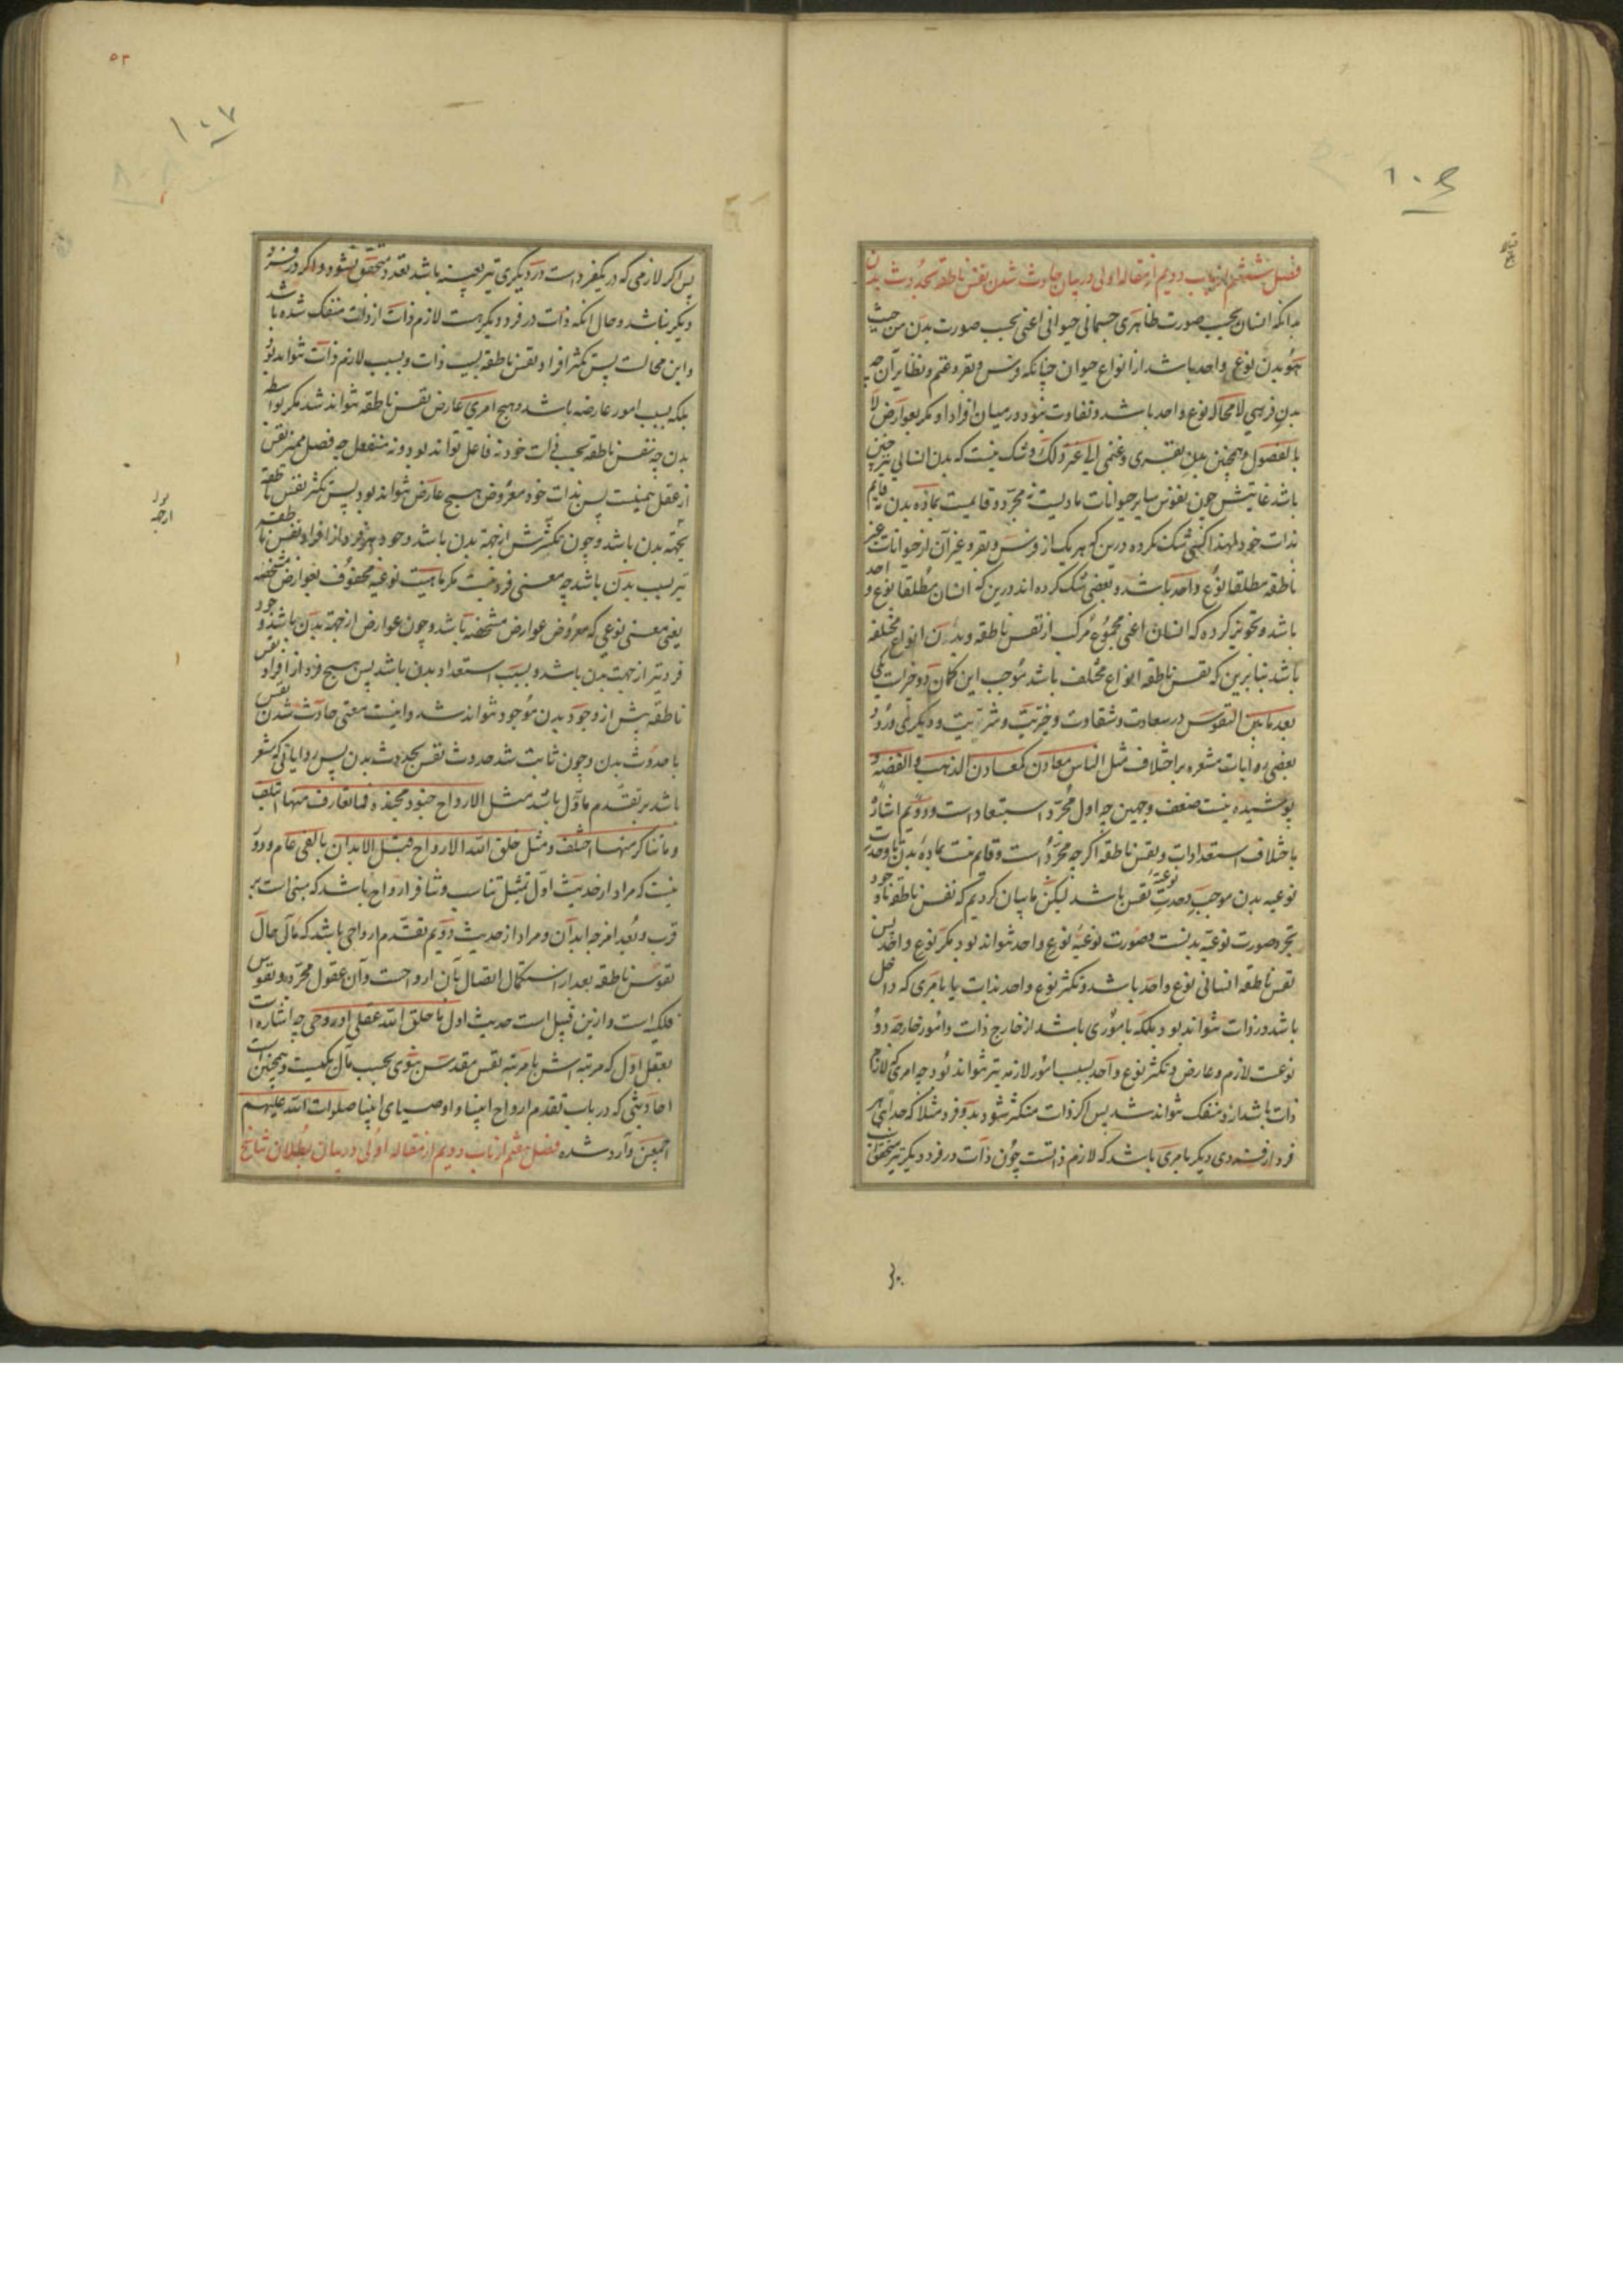 فصل ششم از باب دویم از مقاله اولی در بیان حادث شدن نفس ناطقه بحدوث بدن
بدانکه انسان بحسب صورت ظاهری جسمانی حیوانی اعنی بحسب صورت بدن من حیث
هو بدن نوعی واحد باشد از انواع حیوان چنانکه فرس و بقر و غنم و نظایر آن چه
بدن فرسی لا محاله نوع واحد باشد و تفاوت نبود در میان افراد او مگر بعوارض لا
بالفصول و همچنین بدن بقری و غنمی الی غیر ذلک و شک نیست که بدن انسانی نیز چنین
باشد غایتش چون نفوس سایر حیوانات مادیست نه مجرد و قایمست بماده بدن نه قایم
بذات خود لهذا کسی شک نکرده درین که هر یک از فرس و بقر و غیر آن از حیوانات غیر
ناطقه مطلقا نوع واحد باشد و بعضی شک کرده‌اند درین که انسان مطلقا نوع واحد
باشد و تجویز کرده که انسان اعنی مجموع مرکب از نفس ناطقه و بدن انواع مختلفه
باشد بنا برین که نفس ناطقه انواع مختلف باشد موجب این کمان دو چیزات یکی
بعد ما بین النفوس در سعادت و شقاوت و خیریت و شریت و دیگری ورود
بعضی روایات مشعره بر اختلاف مثل الناس معادن کمعادن الذهب و الفضه و
پوشیده نیست ضعف وجهین چه اول مجرد استبعاد است و دویم اشاره
باختلاف استعدادات و نفس ناطقه اگر چه مجرد است و قایم نیست بماده بدن تا وحدت
نوعیه بدن موجب وحدت نوعیه نفس باشد لیکن ما بیان کردیم که نفس ناطقه با وجود
تجرد صورت نوعیه بدنست و صورت نوعیه نوع واحد نتواند بود مگر نوع واحد پس
نفس ناطقه انسانی نوع واحد باشد و تکثر نوع واحد بذات یا بامری که داخل
باشد در ذات نتواند بود بلکه باموری باشد از خارج ذات و امور خارجه دو
نوعست لازم و عارض و تکثر نوع واحد بسبب امور لازمه نیز نتواند بود چه امری که لازم
ذات باشد از و منفک نتواند شد پس اکر ذات متکثر شود بدو فرد مثلا که جدائی هر
فرد از فردی دیکر بامری باشد که لازم ذاتست چون ذات در فرد دیکر نیز متحقق است
پس اکر لازمی که در یکفرد است در دیکری نیز بعینه باشد تعدد متحقق نشود و اکر در فرد
دیکر نباشد و حال انکه ذات در فرد دیکر هست لازم ذات از ذات منفک شده باشد
و این محالست پس تکثر افراد نفس ناطقه بسبب ذات و بسبب لازم ذات نتواند بود
بلکه بسبب امور عارضه باشد و هیچ امری عارض نفس ناطقه نتواند شد مکر بواسطه
بدن چه نفس ناطقه بحسب ذات خود نه فاعل تواند بود و نه منفعل چه فصل ممیز نفس
از عقل همینست پس بذات خود معروض هیچ عارض نتواند بود پس تکثر نفس ناطقه
بجهة بدن باشد و چون تکثرش از جهة بدن باشد وجود هر فرد از افراد نفس ناطقه
نیز بسبب بدن باشد چه معنی فرد نیست مکر ماهیت نوعیه محفوف بعوارض مشخصه
یعنی معنی نوعی که معروض عوارض مشخصه باشد و چون عوارض از جهة بدن باشد وجود
فرد نیز از جهت بدن باشد و بسبب استعداد بدن باشد پس هیچ فرد از افراد نفس
ناطقه پیش از وجود بدن موجود نتواند شد و اینست معنی حادث شدن نفس
با حدوث بدن و چون ثابت شد حدوث نفس بحدوث بدن پس روایاتی که مشعر
باشد بر تقدم ماول باشد مثل الارواح جنود مجنده فما تعارف منها ائتلف
و ما تناکر منها اختلف و مثل خلق الله الارواح قبل الابدان بالفی عام و دور
نیست که مراد از حدیث اول تمثیل تناسب و تنافر ارواح باشد که مبنی است بر
قرب و بعد امزجه ابدان و مراد از حدیث دویم تقدم ارواحی باشد که مآل حال
نفوس ناطقه بعد از استکمال اتصال بآن ارواحست و آن عقول مجرده و نفوس
فلکیه است و ازین قبیل است حدیث اول ما خلق الله عقلی او روحی چه اشاره است
بعقل اول که مرتبه اش با مرتبه نفس مقدس نبوی بحسب مآل یکیست و همچنین است
احادیثی که در باب تقدم ارواح انبیا و اوصیای انبیا صلوات الله علیهم
اجمعین وارد شده فصل هفتم از باب دویم از مقاله اولی در بیان بطلان تناسخ
۵۲
۱۰۷
۱۰۶